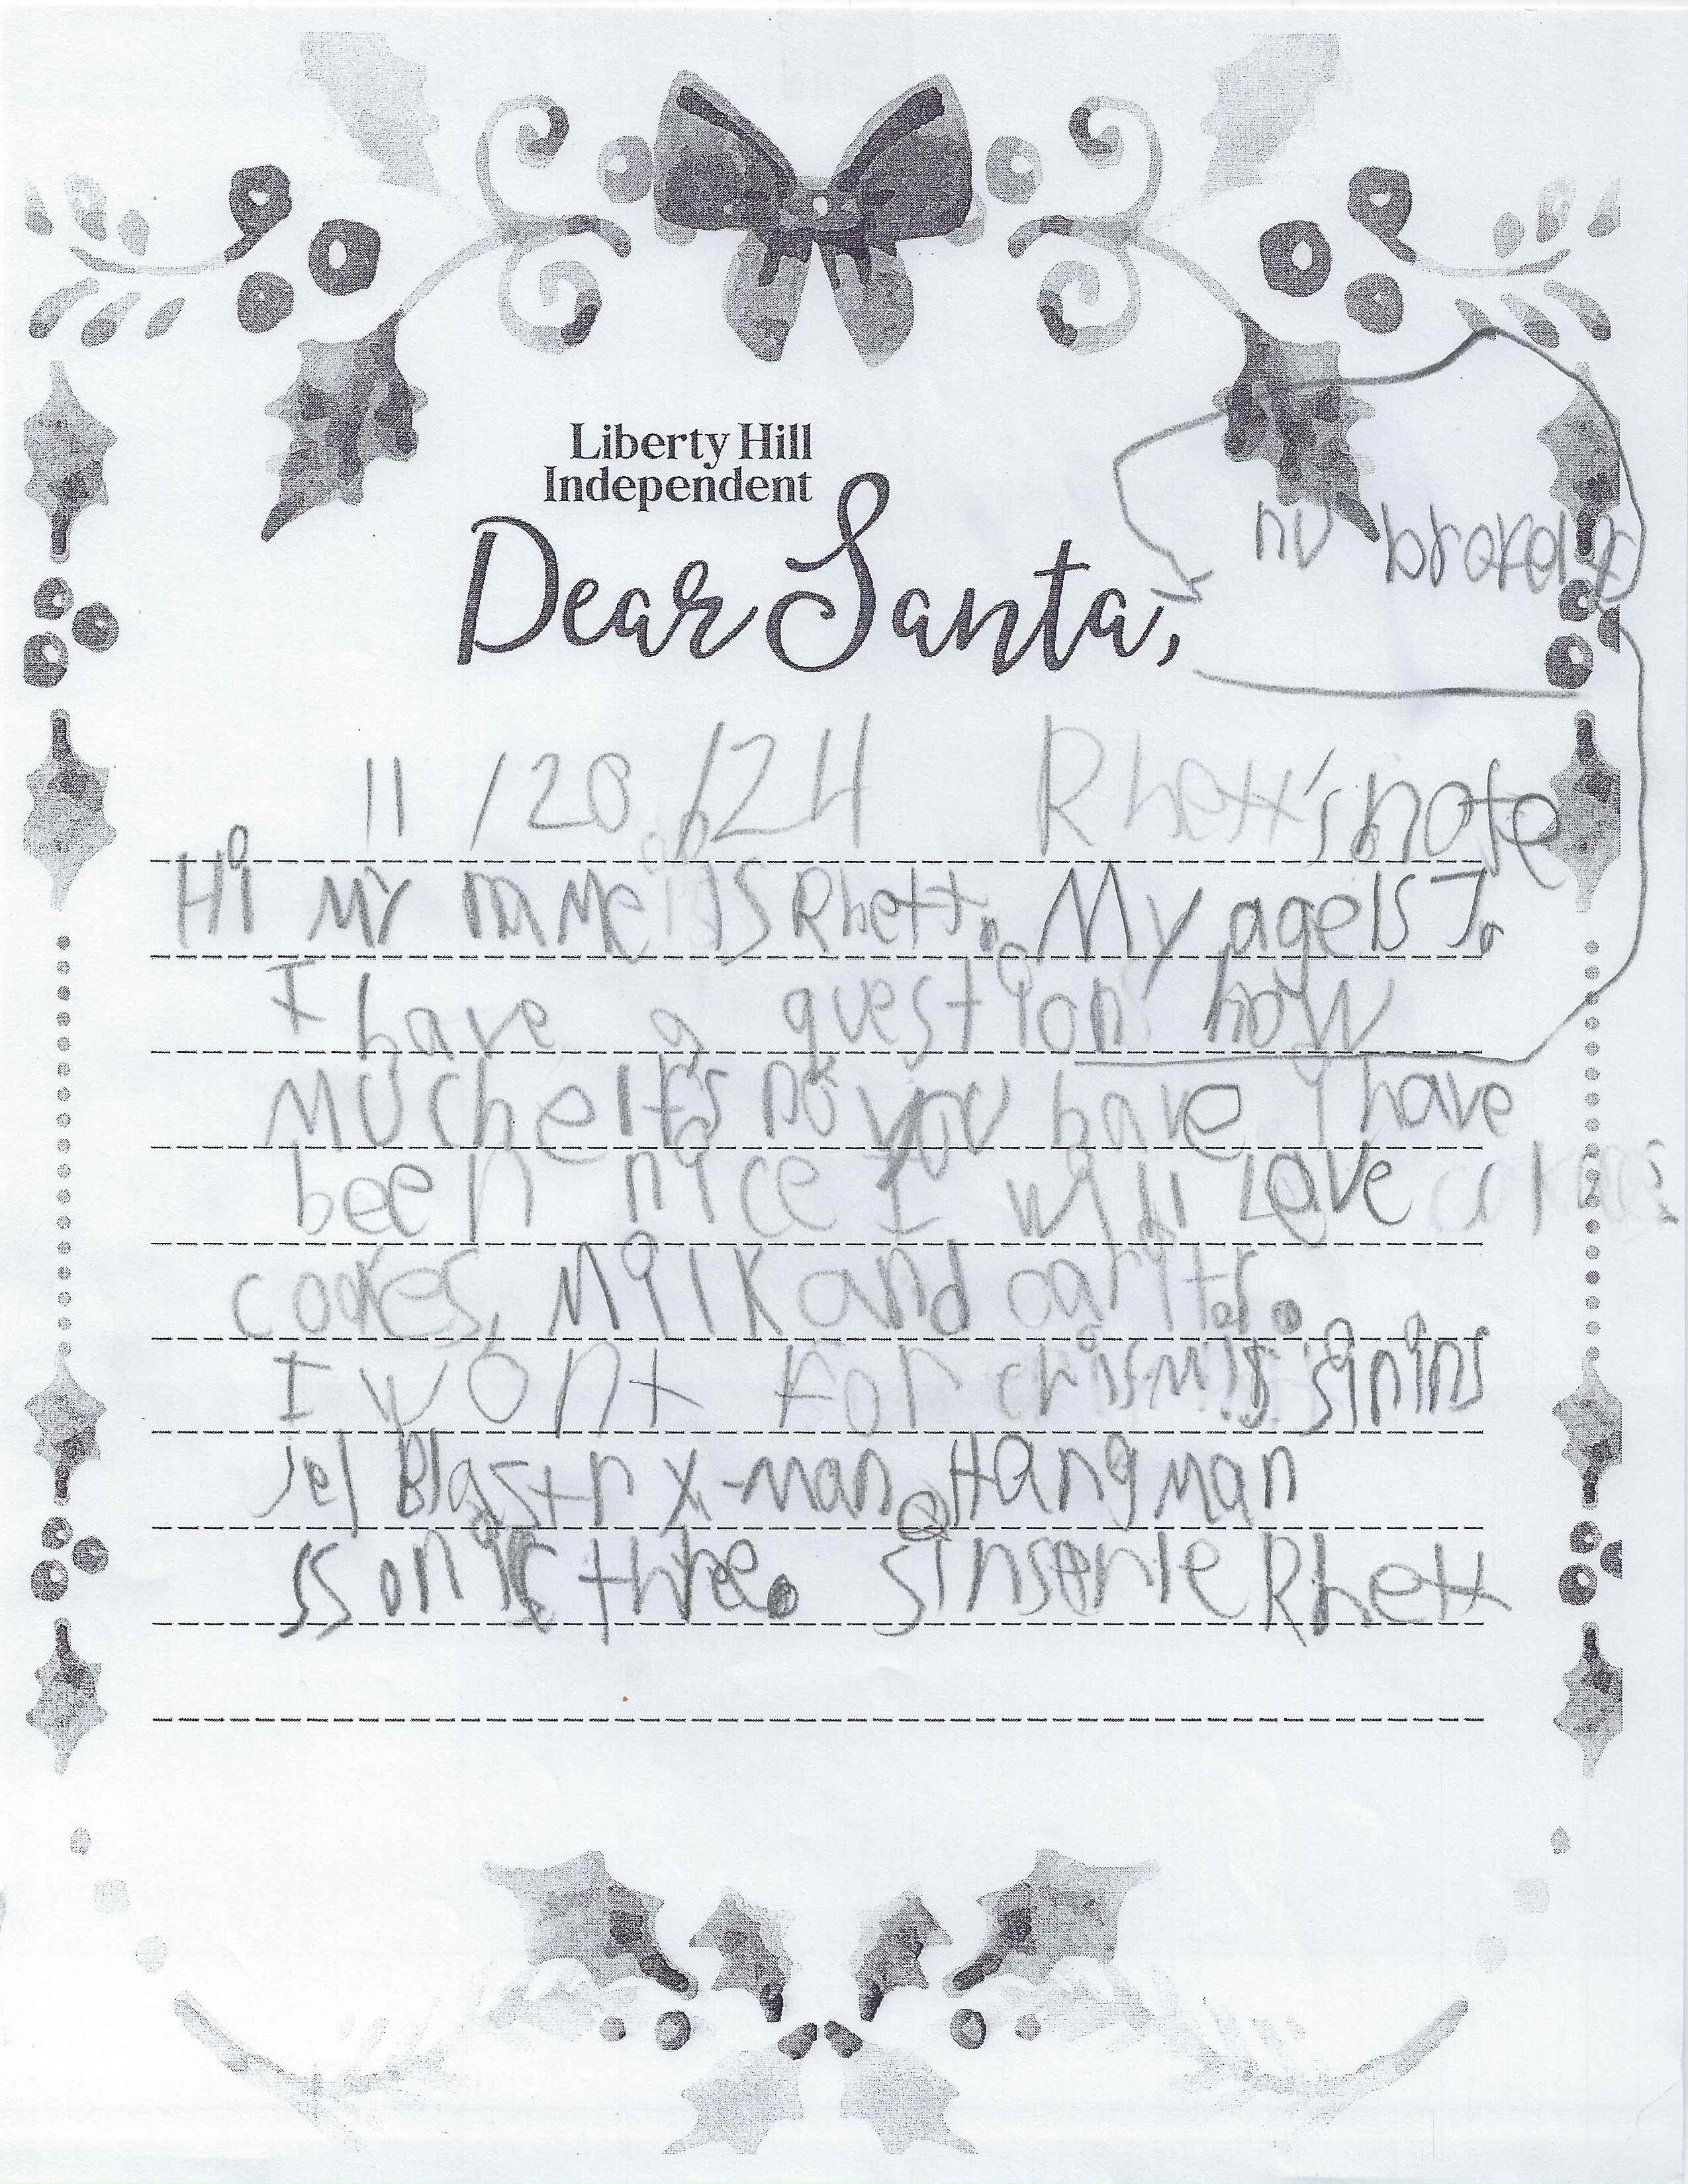 Liberty Hill
Independent
Dear Santa,
no
11/20/24 Rhett's note
Hi My name is Rhett. My age is 7.
I have a question how
Much elfs do you have I have
been nice I will Leave
cookes, Milk and
I wont for crismis
jel Blastr X-man, Hangman
sonic three. Rhett